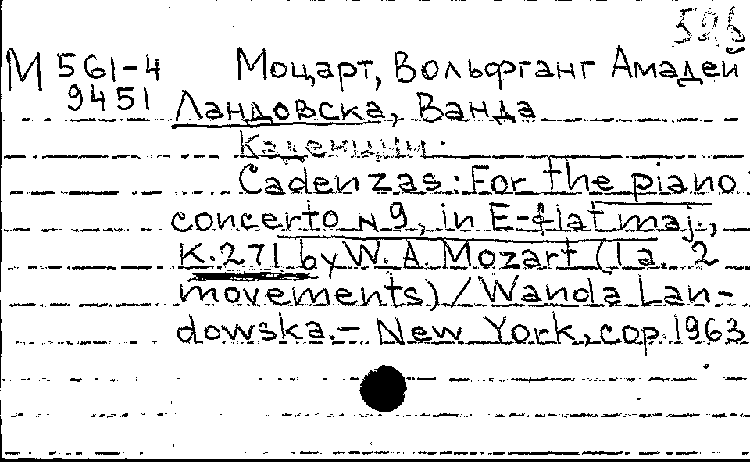 596
М 561-4 Моцарт, Вольфганг Амадей
9451 Ландовска, Ванда
Каденции.
Cadenzas: For the piano
concerto N 9, in E-flat maj.,
K.271 by W. A. Mozart (1 a. 2
movements) / Wanda Lan-
dowska. – New York, cop. 1963